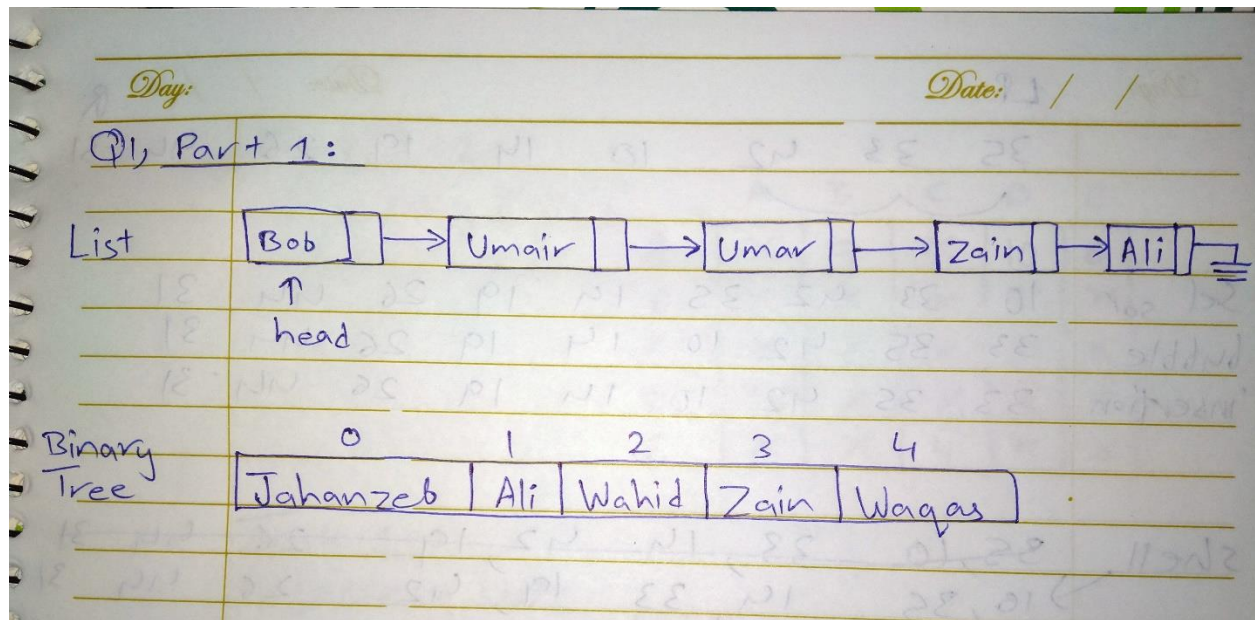 Day: Date: / /
Q1, Part 1:
List Bob Umair Umar Zain Ali
head
0 1 2 3 4
Binary Tree Jahanzeb Ali Wahid Zain Waqas